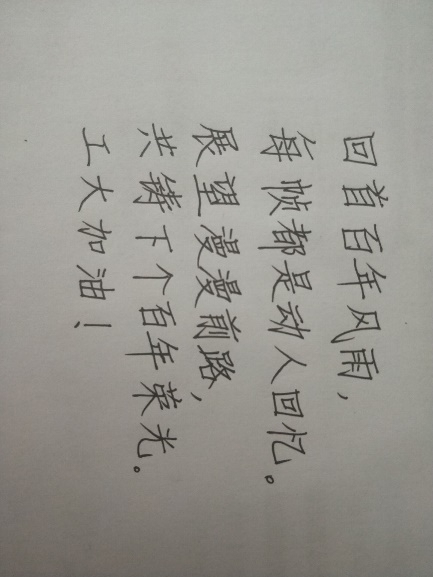 回首百年风雨，
每帧都是动人回忆。
展望漫漫前路，
共铸下个百年荣光。
工大加油！